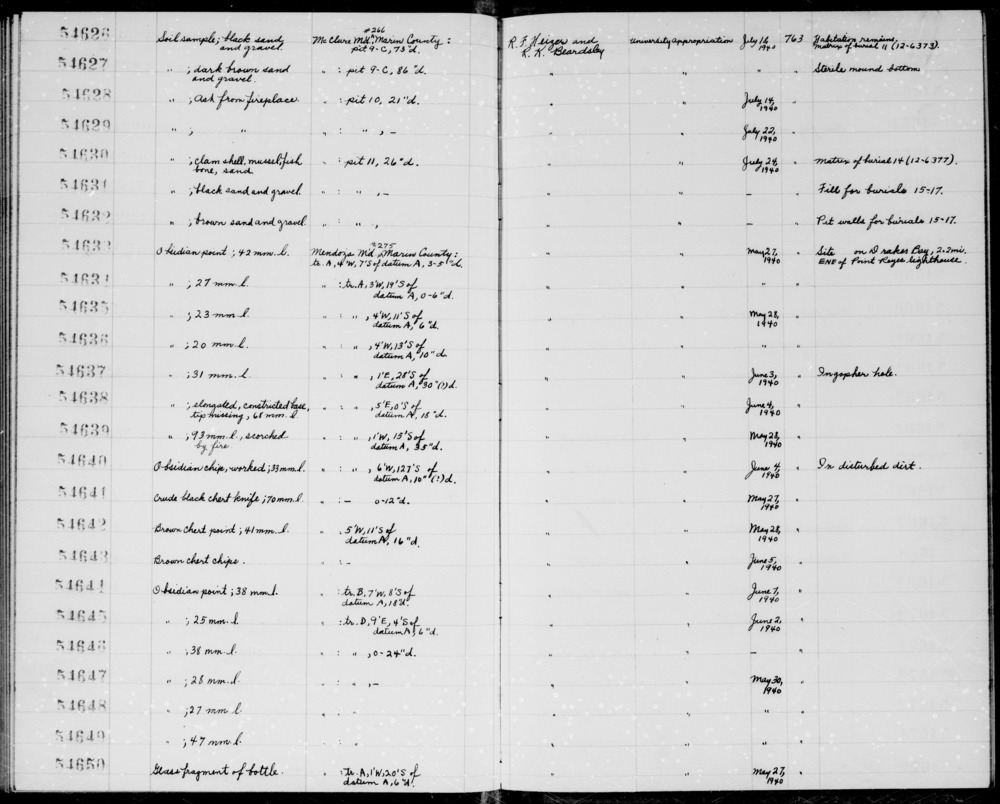 54626 Soil sample; black sand and gravel. McClure Md. #266 Marin County: pit 9-C, 73"d. R. F. Heizer and R. K. Beardsley University appropriation July 16, 1940 763 Habitation remains, matrix of burial 11 (12-6373).
54627 " ; dark brown sand and gravel. " : pit 9-C, 86"d. " " " " Sterile mound bottom
54628 " ; Ash from fireplace. " : pit 10, 21"d. " " July 14, 1940 "
54629 " ; " " : " , – " " July 22, 1940 "
54630 " ; clam shell, mussel, fish bone, sand " : pit 11, 26"d. " " July 24, 1940 " matrix of burial 14 (12-6377).
54631 " ; black sand and gravel. " : " , – " " – " Fill for burials 15-17.
54632 " ; brown sand and gravel " : " , " " – " Pit walls for burials 15-17.
54633 Obsidian point; 42 mm. l. Mendoza Md. #275, Marin County: tr. A, 4'W, 7'S of datum A, 3-5"d. " " May 27, 1940 " Site on Drakes Bay, 2.2 mi. ENE of Point Reyes lighthouse.
54634 " ; 27 mm. l. " : tr. A, 3'W, 19'S of datum A, 0-6"d. " " " " "
54635 " ; 23 mm. l. " : " , 4'W, 11'S of datum A, 6"d. " " May 28, 1940 "
54636 " ; 20 mm. l. " : " , 4'W, 13'S of datum A, 10"d. " " " "
54637 " ; 31 mm. l. " : " , 1'E, 28'S of datum A, 30"(?)d. " " June 3, 1940 " In gopher hole.
54638 " ; elongated, constricted base, tip missing, 68 mm. l. " : " , 5'E, 0'S of datum A, 18"d. " " June 4, 1940 "
54639 " ; 93 mm. l., scorched by fire " : " , 1'W, 15'S of datum A, 35"d. " " May 28, 1940 "
54640 Obsidian chip, worked; 33 mm. l. " : " , 6'W, 127'S of datum A, 10"(?)d. " " June 4, 1940 " In disturbed dirt.
54641 Crude black chert knife; 70 mm. l. " : – 0-12"d. " " May 27, 1940 "
54642 Brown chert point; 41 mm. l. " 5'W, 11'S of datum A, 16"d. " " May 28, 1940 "
54643 Brown chert chips. " : – " " June 5, 1940 "
54644 Obsidian point; 38 mm. l. " : tr. B, 7'W, 8'S of datum A, 18"d. " " June 7, 1940 "
54645 " ; 25 mm. l. " : tr. D, 9'E, 4'S of datum A, 6"d. " " June 2, 1940 "
54646 " ; 38 mm. l. " : " , 0-24"d. " " – "
54647 " ; 28 mm. l. " : " , – " " May 30, 1940 "
54648 " ; 27 mm l. " : " " " " "
54649 " ; 47 mm. l. " : " " " " "
54650 Glass fragment of bottle. " : tr. A, 1'W, 20'S of datum A, 6"d. " " May 27, 1940 "